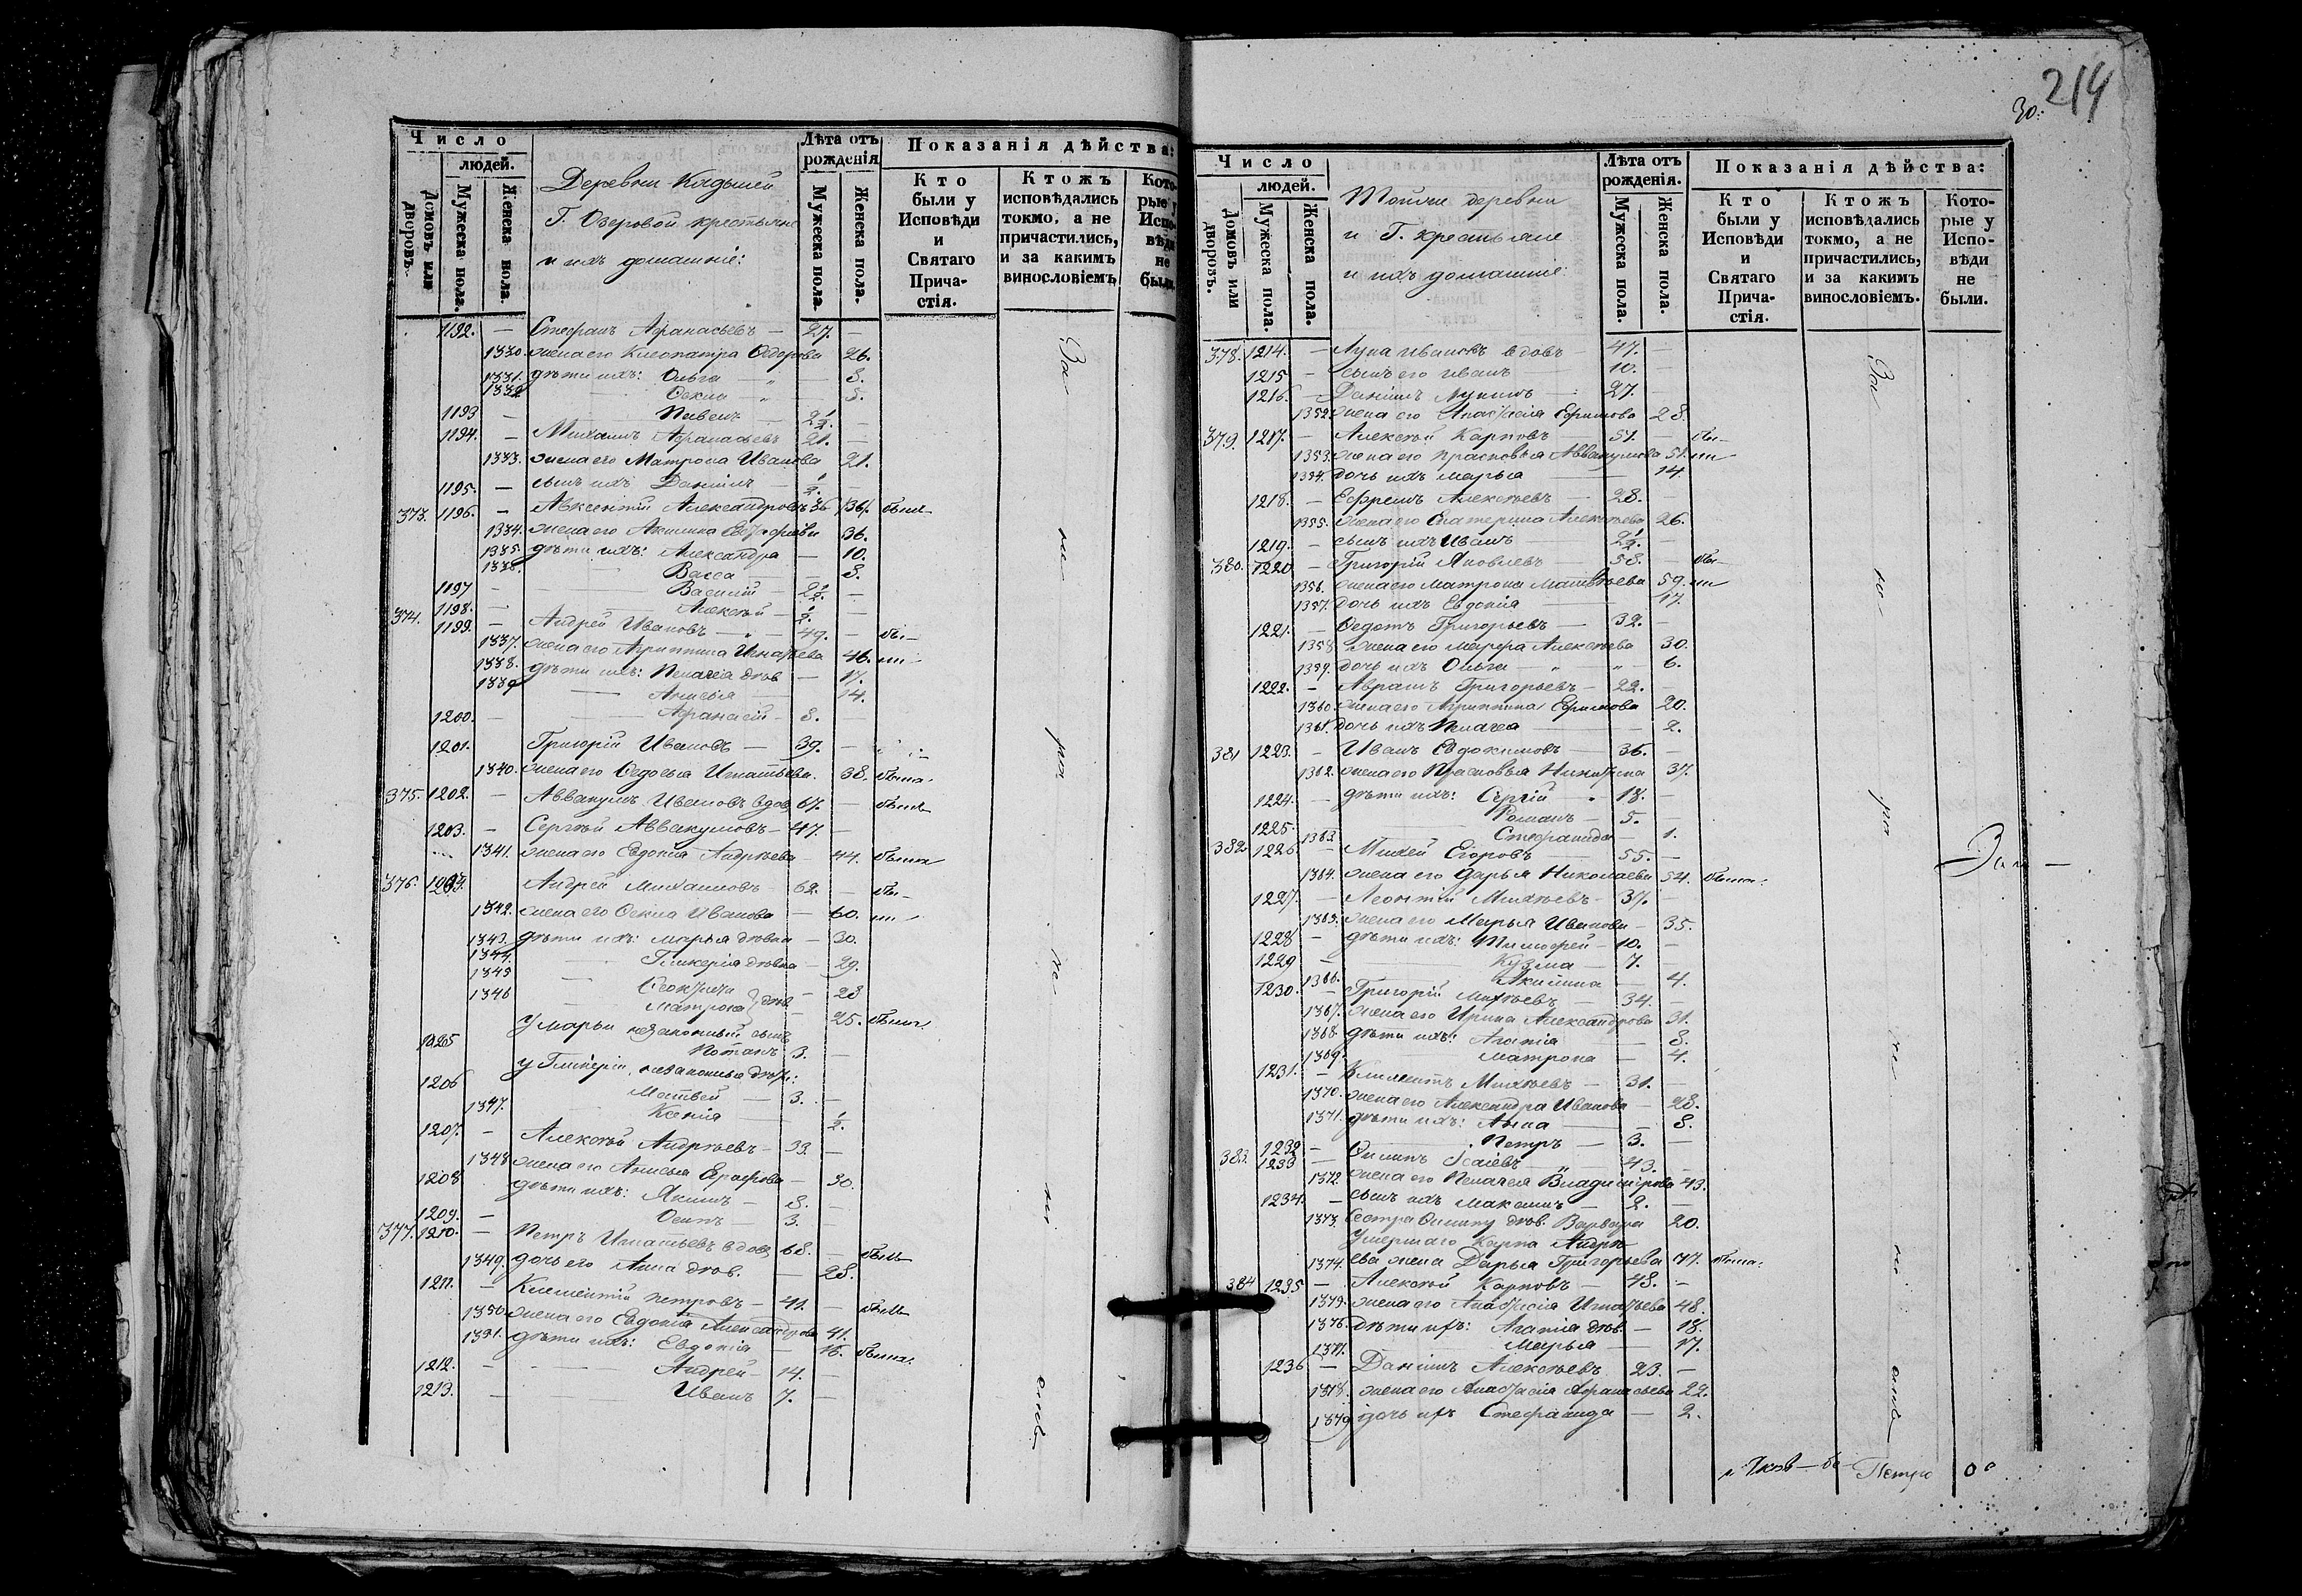 Число
людей.
Домовъ или дворовъ.
Мужеска пола.
Женска пола.
Деревни Кадышей
Г. Озеровой крестьяне
и ихъ домашніе:
Лѣта отъ рожденія
Мужеска пола.
Женска пола.
Показанія дѣйства:
Кто были у Исповѣди и Святаго Прича-стія.
Ктожъ исповѣдались токмо, а не причастились, и за какимъ винословіемъ
Кото-рые у Испо-вѣди не были.
1192. — Стефанъ Афанасьевъ — 27. —
1330. жена его Клеопатра Ѳедорова 26.
1331. дѣти ихъ: Ольга — 8.
1332 Ѳекла — 5.
1193 — Павелъ — 2½. —
1194. — Михаилъ Афанасьевъ 21. —
1333. жена его Матрона Иванова 21.
1195. — сынъ ихъ Даніилъ — ½. —
373. 1196. — Авксентій Александровъ 36
1334. жена его Акилина 36.
1335. дѣти ихъ: Александра — 10.
1336. Васса — 8.
1197 — Василій — 2½. —
1198. — Алексѣй — ½. —
374. 1199. — Андрей Ивановъ — 49. —
1337. жена его Агриппина Игнатьева 46.
1338. дѣти ихъ: Пелагія дѣв. — 17.
1339 Анисья — 14.
1200. — Афанасій — 8. —
1201. Григорій Ивановъ — 39. —
1340. жена его Ѳедосья Игнатьева. 38. была.
375. 1202. — Аввакумъ Ивановъ вдов. 67. — былъ
1203. — Сергѣй Аввакумовъ — 47. —
1341. жена его Евдокія Андреева 44. была
376. 1204. Андрей Михаиловъ 62. — бы—
1342. жена его Ѳекла Иванова — 60. ли
1343. дѣти ихъ: Марья дѣвка — 30.
1344. Гликерія дѣвка — 29.
1345 — 28
1346 Матрона дѣв. — 25. была
У Марьи незаконный сынъ
1205 Потапъ 3. —
У Гликеріи незаконныя дѣти:
1206 Матвей — 3. —
1347. Ксенія — ½.
1207. — Алексѣй Андреевъ — 33. —
1348 жена его Анисья 30.
1208 дѣти ихъ: Якимъ — 8. —
1209. — Осипъ — 3. —
377. 1210. — Петръ Игнатьевъ вдов. 68. — былъ
1349. дочь его Анна дѣв. — 28.
1211. — Климентій Петровъ — 41. — былъ
1350. жена его Евдокія Александрова 41.
1351. дѣти ихъ: Евдокія — 16. была.
1212. — Андрей — 14. —
1213. — Иванъ 7. —
За не
ни
214
30.
Число
людей.
Домовъ или дворовъ.
Мужеска пола.
Женска пола.
Тойже деревни
и Г. крестьяне
и ихъ домашніе:
Лѣта отъ рожденія.
Мужеска пола.
Женска пола.
Показанія дѣйства:
Кто были у Исповѣди и Святаго Прича-стія.
Ктожъ исповѣдались токмо, а не причастились, и за какимъ винословіемъ.
Кото-рые у Испо-вѣди не были.
378. 1214. — Лука Ивановъ вдовъ — 47. —
1215 — сынъ его Иванъ — 10. —
1216. — Даніилъ Лукинъ — 27. —
1352. жена его Анастасія Ефимова 28.
379. 1217. — Алексѣй Карповъ — 51. — бы—
1353. жена его Прасковья Аввакумова 51. ли
1354. дочь ихъ Марья — 14.
1218. — Ефремъ Алексѣевъ — 28. —
1355. жена его Екатерина Алексѣева 26.
1219. — сынъ ихъ Иванъ — 2½. —
380. 1220 — Григорій Яковлевъ — 58. — бы—
1356. жена его Матрона Матвѣева 59. ли
1357. дочь ихъ Евдокія — 17.
1221. — Ѳедотъ Григорьевъ — 32. —
1358 жена его Марфа Алексѣева 30.
1359. дочь ихъ Ольга — 6.
1222. — Аврамъ Григорьевъ — 22. —
1360. жена его Агриппина Ефимова 20.
1361. дочь ихъ Пелагея — 2.
381 1223. — Иванъ Евдокимовъ 36. —
1362. жена его Прасковья Никитина 37.
1224. — дѣти ихъ: Сергій — 18. —
1225. Романъ — 5. —
1363 Стефанида — 1.
382. 1226. — Михей Егоровъ — 55. —
1364. жена его Дарья Николаева 54. была.
1227. — Леонтій Михѣевъ — 37. —
1365. жена его Марья Иванова — 35.
1228 — дѣти ихъ: Тимофей — 10. —
1229 — Кузма — 7. —
1366. Акилина — 4.
1230. — Григорій Михѣевъ — 34. —
1367. жена его Ирина Александрова 31.
1368 дѣти ихъ: Агапія — 8.
1369. Матрона — 4.
1231. — Климентъ Михѣевъ — 31. —
1370. жена его Александра Иванова — 28.
1371. дѣти ихъ: Анна — 8.
1232 — Петръ — 3. —
383. 1233 — Филипъ Исаіевъ — 43. —
1372. жена его Пелагея Владимірова 43.
1234. — сынъ ихъ Максимъ — 2. —
1373. Сестра Филипу дѣв. Варвара 20.
Умершаго Карпа Андрѣ
1374. ева жена Дарья Григорьева 77. была.
384 1235 — Алексѣй Карповъ — 48. —
1375. жена его Анастасія Игнатьева 48.
1376. дѣти ихъ: Агапія дѣв. — 18.
1377. Марья — 17.
1236 — Даніилъ Алексѣевъ 23. —
1378. жена его Анастасія Афанасьева 22.
1379 дочь ихъ Стефанида — 2.
За
Петро